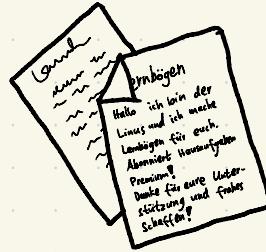 ernbögen
Hallo ich bin der
Linus und ich mache
Lernbögen für euch.
Abonniert Hausaufgaben
Premium!
Danke für eure Unter-
stützung und frohes
Schaffen!